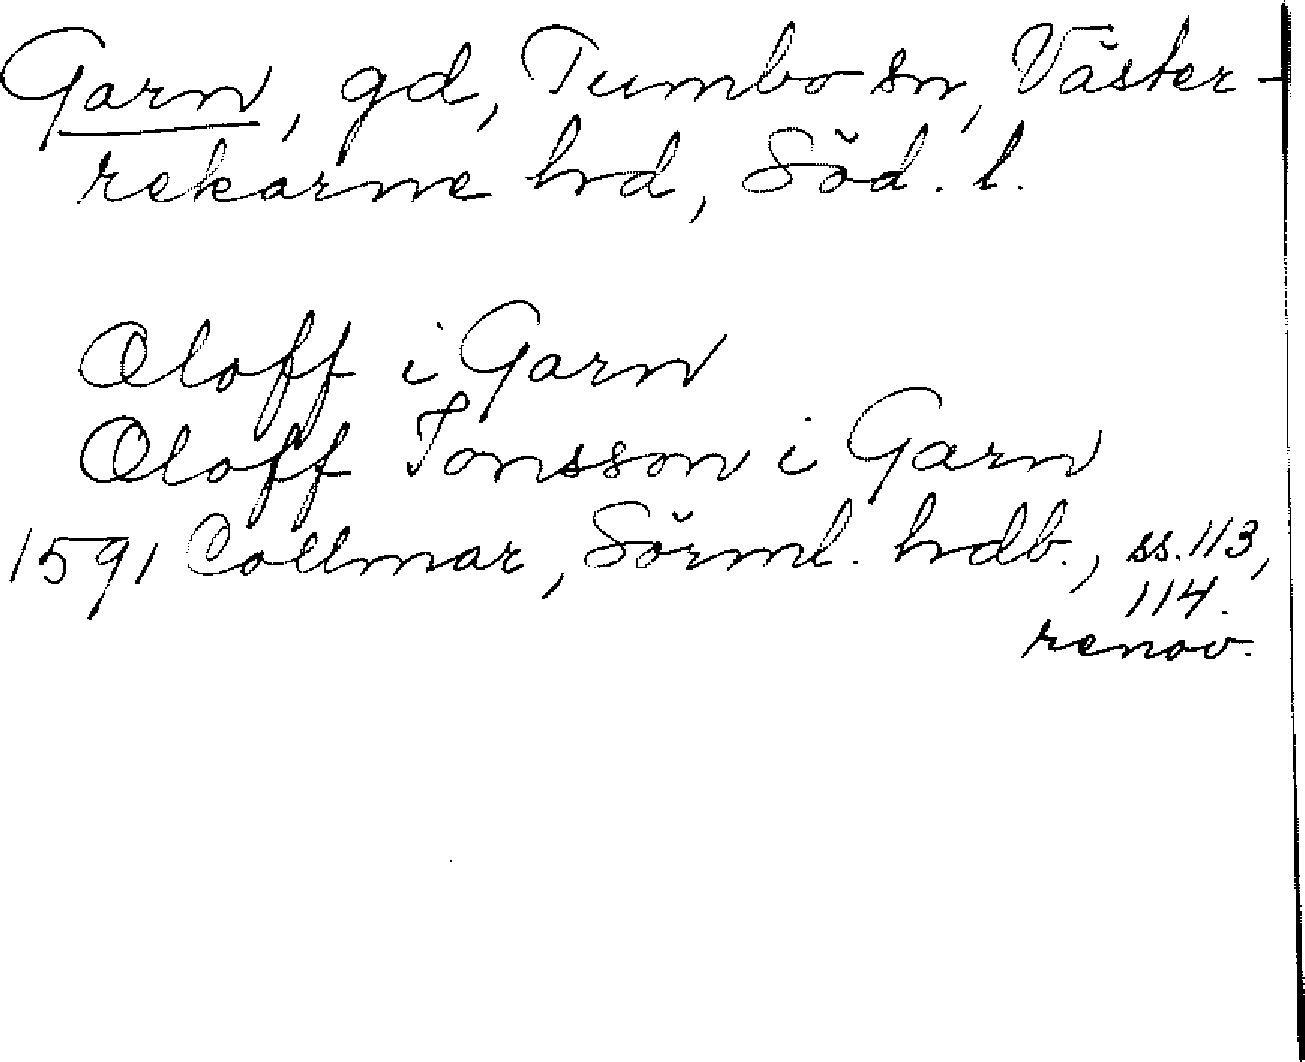 Garn, gd, Tumbo sn, Väster-
rekarne hd, Söd. l.
Oloff i Garn
Oloff Jonsson i Garn
1591 Collmar, Sörml. hdb., ss. 113,
114.
renov.